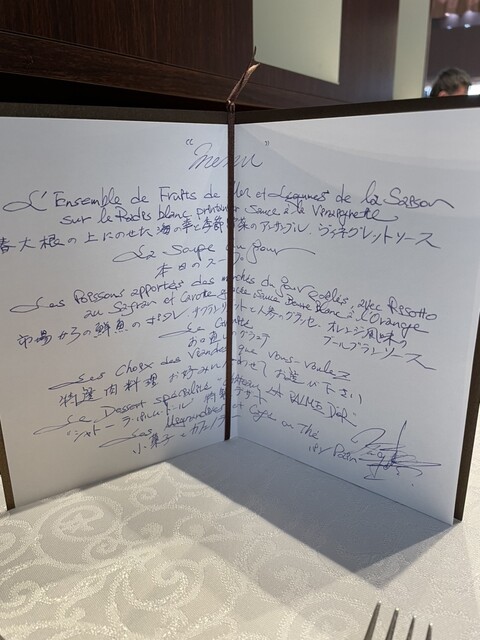 "Menu"
L'Ensemble de Fruits de Mer et Légumes de la Saison
sur le Radis blanc printanier Sauce à la Vinaigrette
春大根の上にのせた海の幸と季節野菜のアンサンブル、ヴィネグレットソース
La Soupe du Jour
本日のスープ
Les Poissons apportés des marchés du jour poêlés, avec Risotto
au Safran et Carotte glacée Sauce Beurre Blanc à l'Orange
市場からの鮮魚のポワレ、サフランリゾットと人参のグラッセ、オレンジ風味の
ブールブランソース
Le Granité
お口直しのグラニテ
Les Choix des Viandes que Vous-Voulez
特選肉料理 お好みに合わせてお選び下さい
Le Dessert Spécialité "Château LA PALME D'OR"
"シャトーラ・パルム・ドール" 特製デザート
Les Mignardises et Café ou Thé
小菓子とカフェ
et Pain